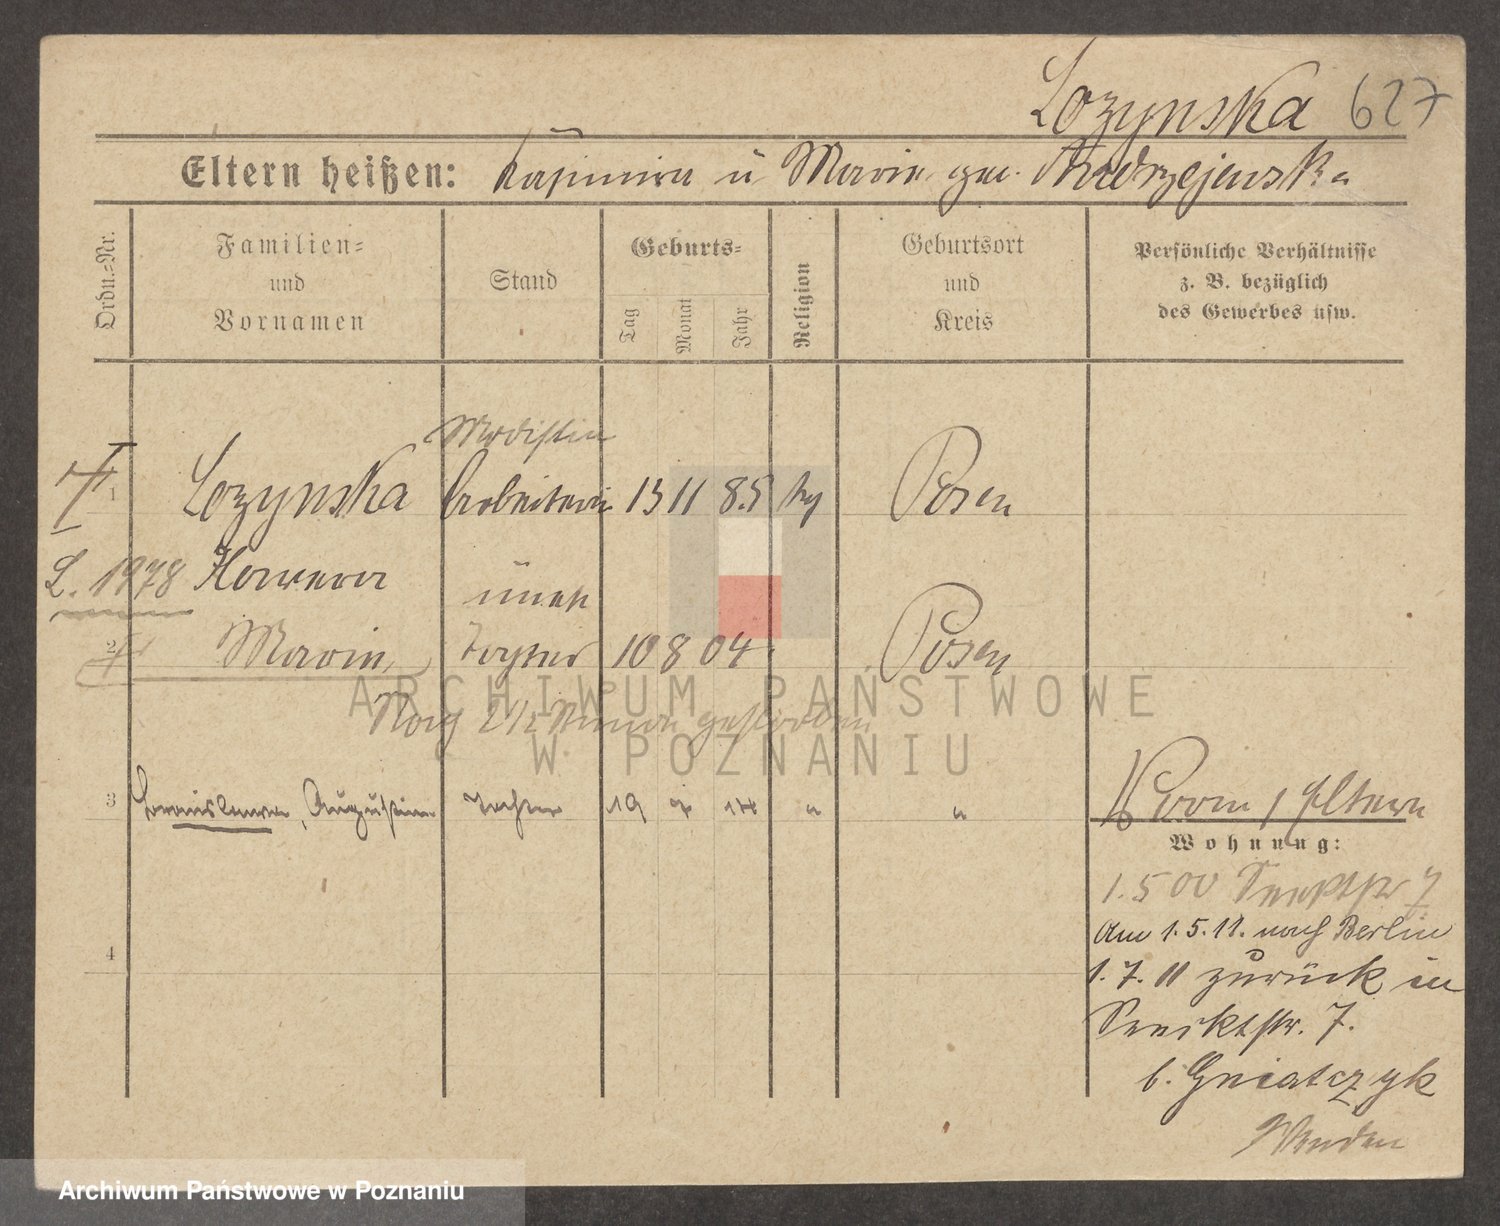 Lozynska 627
Eltern heißen: Kasimira u Maria geb. Andrzejewska
Ordn.-Nr.
Familien-
und
Vornamen
Stand
Geburts-
Tag
Monat
Jahr
Religion
Geburtsort
und
Kreis
Persönliche Verhältnisse
z. B. bezüglich
des Gewerbes usw.
Modistin
1 Lozynska Arbeiterin 13 11 85 Posen
L. 1978
uneh
2 Maria Tochter 10 8 04 Posen
Nach gestorben
3 Augustina Tochter 19 14 " "
Eltern
Wohnung:
1.5 00 7
Am 1.5.11. nach Berlin
4
1.7.11 zurück in
7.
b. Gniatczyk
Wenden
ARCHIWUM PAŃSTWOWE
W POZNANIU
Archiwum Państwowe w Poznaniu